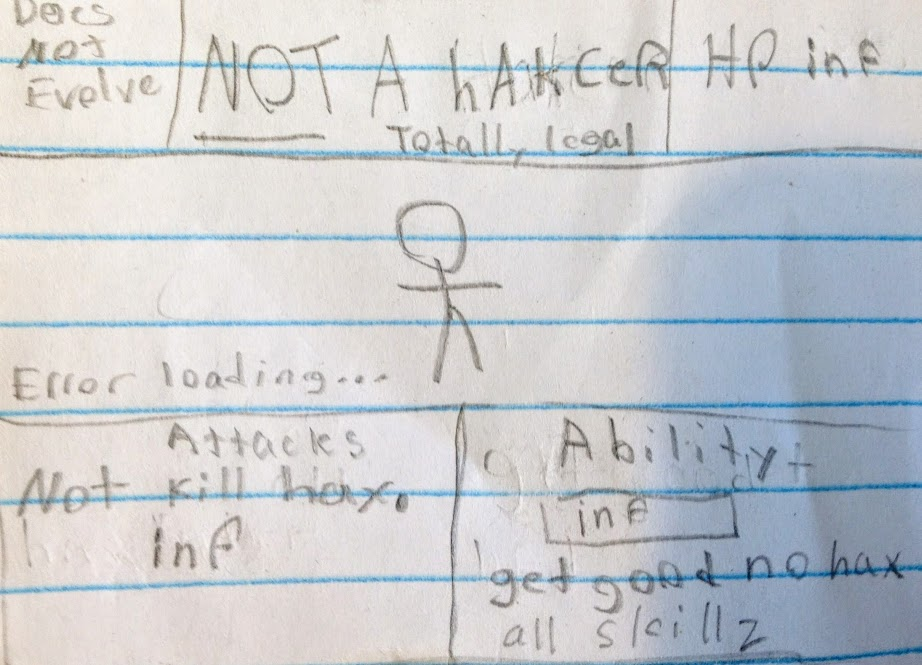 Does
Not
Evolve
NOT A hAKCeR
Totally legal
HP inf
Error loading...
Attacks
Not kill hax.
inf
Ability
inf
get good no hax
all skillz